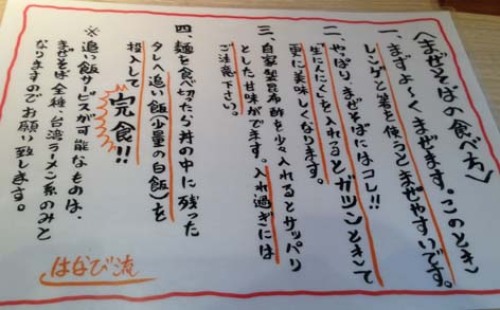 〈まぜそばの食べ方〉
一、まずよ〜くまぜます。このとき
レンゲと箸を使うとまぜやすいです。
二、やっぱりまぜそばにはコレ!!
「生にんにく」を入れるとガツンときて
更に美味しくなります。
三、自家製昆布酢を少々入れるとサッパリ
とした甘味がでます。入れ過ぎには
ご注意下さい。
四、麺を食べ切ったら丼の中に残った
タレへ追い飯(少量の白飯)を
投入して完食!!
※追い飯サービスが可能なものは、
まぜそば全種、台湾ラーメン系のみと
なりますのでお願い致します。
はなび流